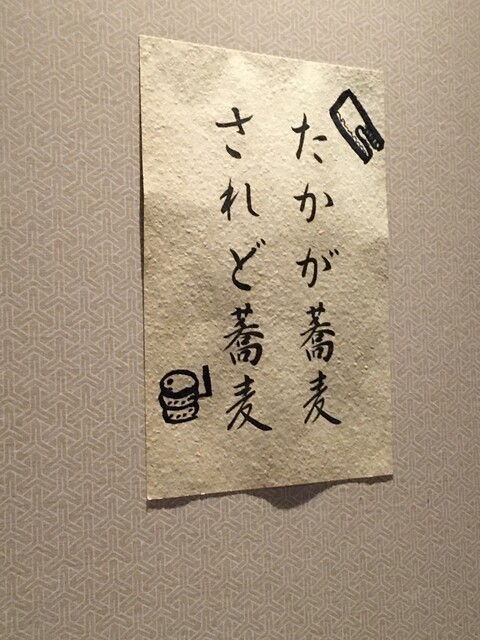 たかが蕎麦
されど蕎麦